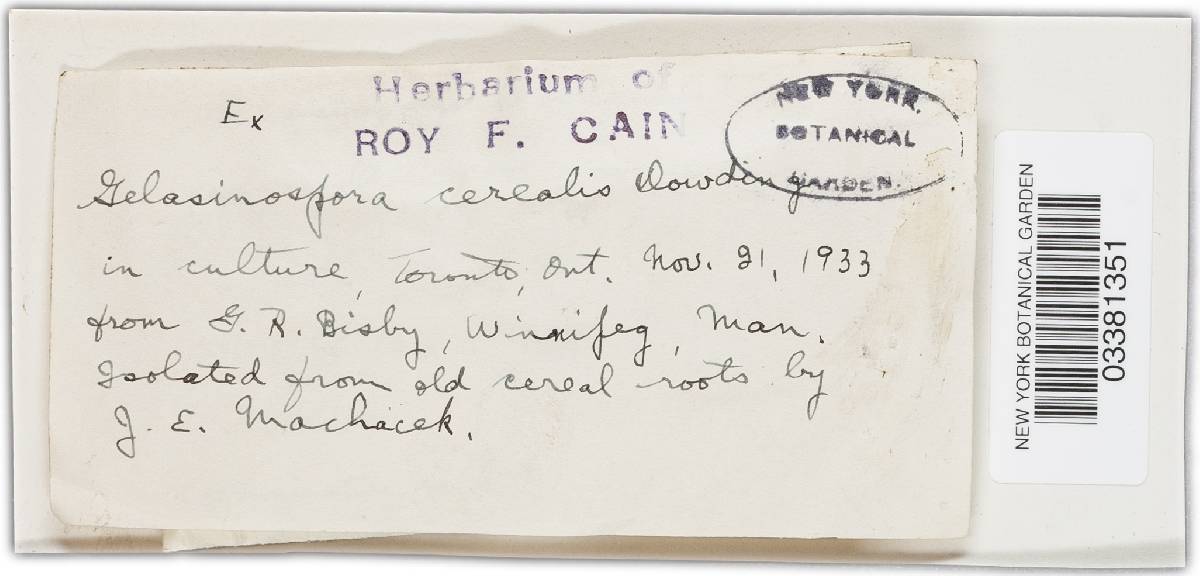 Ex
Herbarium of
ROY F. CAIN
NEW YORK
BOTANICAL
GARDEN.
Gelasinospora cerealis Dowding
in culture, Toronto, Ont. Nov. 21, 1933
from G. R. Bisby, Winnipeg, Man.
Isolated from old cereal roots by
J. E. Machacek.
NEW YORK BOTANICAL GARDEN
03381351